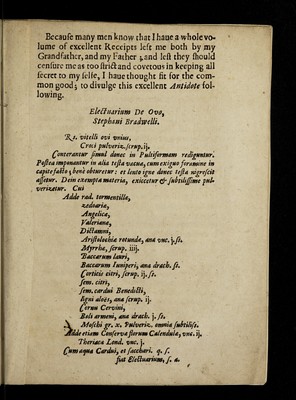 Because many men know that I haue a whole vo-
lume of excellent Receipts left me both by my
Grandfather, and my Father; and left they should
censure me as too strict and covetous in keeping all
secret to my selfe, I haue thought fit for the com-
mon good; to divulge this excellent Antidote fol-
lowing.
Electuarium De Ovo,
Stephani Bradwelli.
Rs. vitelli ovi unius,
Croci pulveriz. scrup. ij.
Conterantur simul donec in Pultiformam redigantur.
Postea imponantur in alia testa vacua, cum exiguo foramine in
capite facto; bene obturetur: et lento igne donec testa nigrescit
assetur. Dein exempta materia, exiccetur & subtilissime pul-
verizetur. Cui
Adde rad. tormentille,
zedoariæ,
Angelicæ,
Valerianæ,
Dictamni,
Aristolochiæ rotundæ, ana vnc. j. ss.
Myrrhæ, scrup. iiij.
Baccarum lauri,
Baccarum Iuniperi, ana drach. ss.
Corticis citri, scrup. ij. ss.
sem. citri,
sem. cardui Benedicti,
ligni aloës, ana scrup. ij.
Cornu Cervini,
Boli armeni, ana drach. j. ss.
Moschi gr. x. Pulveriz. omnia subtiliss.
Adde etiam Conservæ florum Calendulæ, vnc. ij.
Theriacæ Lond. vnc. j.
Cum aqua Cardui, et sacchari. q. s.
fiat Electuarium, s. a.